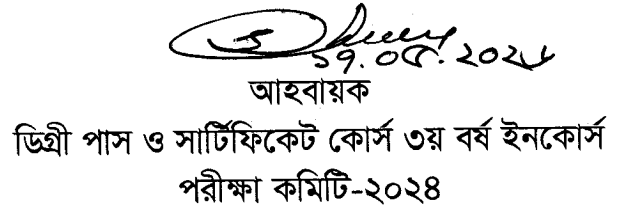 ১৭.০৫.২০২৬
আহবায়ক
ডিগ্রী পাস ও সার্টিফিকেট কোর্স ৩য় বর্ষ ইনকোর্স
পরীক্ষা কমিটি-২০২৪